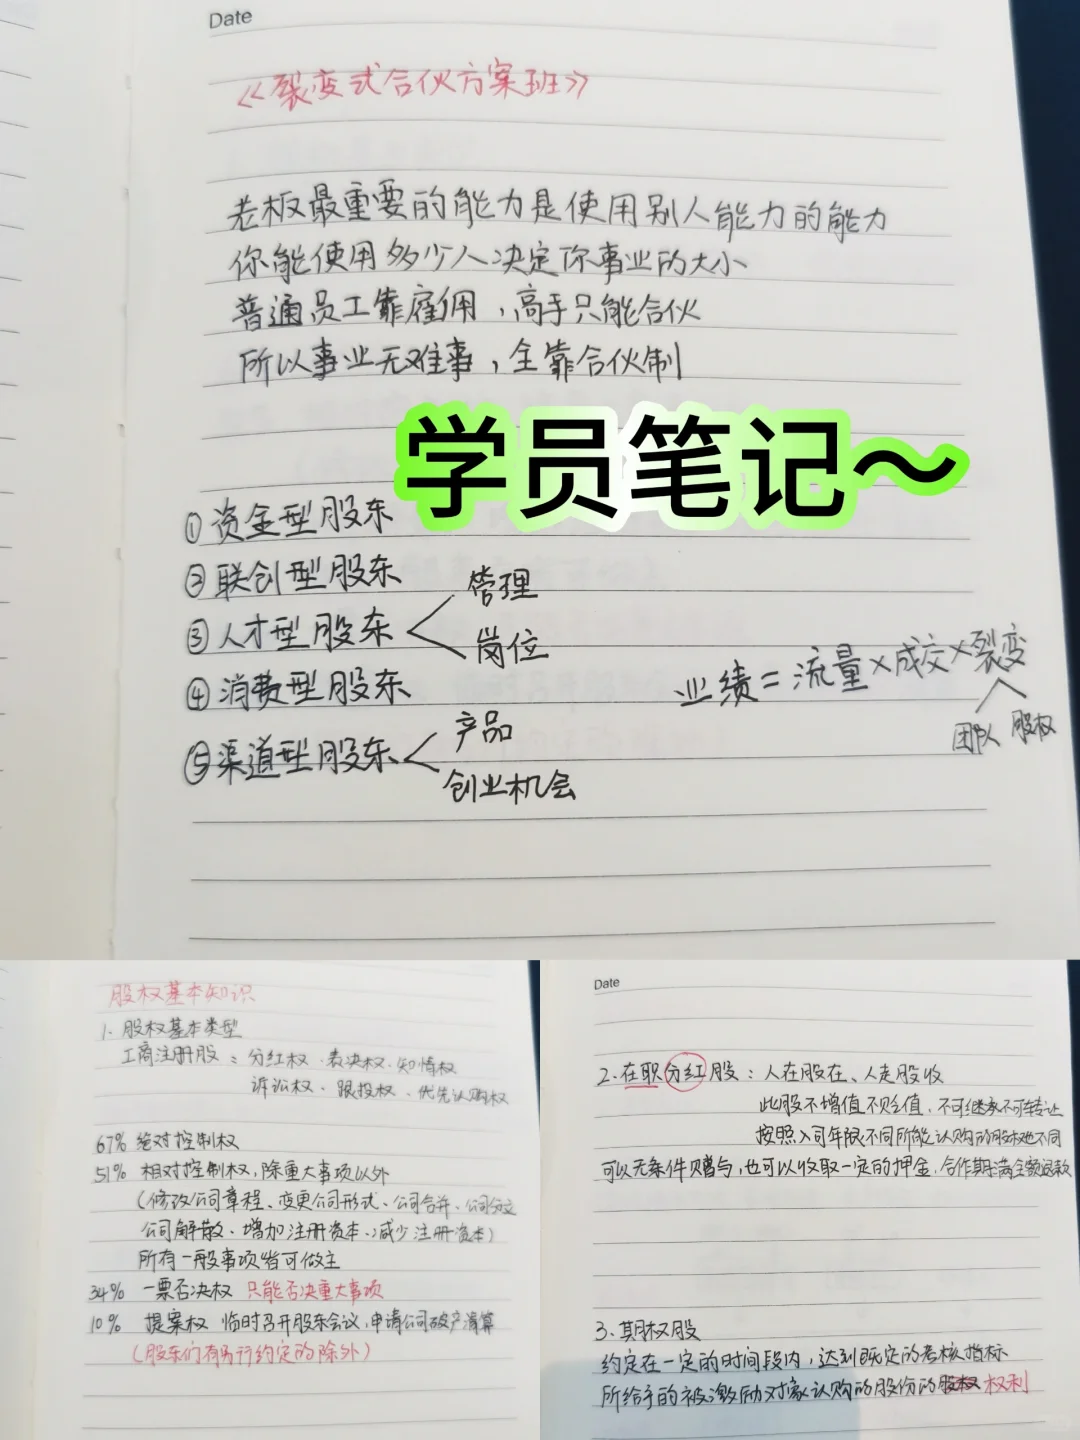 Date
《裂变式合伙方案班》
老板最重要的能力是使用别人能力的能力
你能使用多少人决定你事业的大小
普通员工靠雇佣，高手只能合伙
所以事业无难事，全靠合伙制
学员笔记～
①资金型股东
②联创型股东
③人才型股东
管理
岗位
④消费型股东
⑤渠道型股东
产品
创业机会
业绩=流量×成交×裂变
团队 股权
股权基本知识
1. 股权基本类型
工商注册股：分红权、表决权、知情权
诉讼权、跟投权、优先认购权
67% 绝对控制权
51% 相对控制权，除重大事项以外
(修改公司章程、变更公司形式、公司合并、公司分立
公司解散、增加注册资本、减少注册资本)
所有一般事项皆可做主
34% 一票否决权 只能否决重大事项
10% 提案权 临时召开股东会议，申请公司破产清算
(股东们有另行约定的除外)
Date
2.在职分红股：人在股在、人走股收
此股不增值不贬值，不可继承不可转让
按照入司年限不同所能认购的股权也不同
可以无条件赠与，也可以收取一定的押金，合作期满全额退款
3.期权股
约定在一定的时间段内，达到既定的考核指标
所给予的被激励对象认购的股份的股权权利